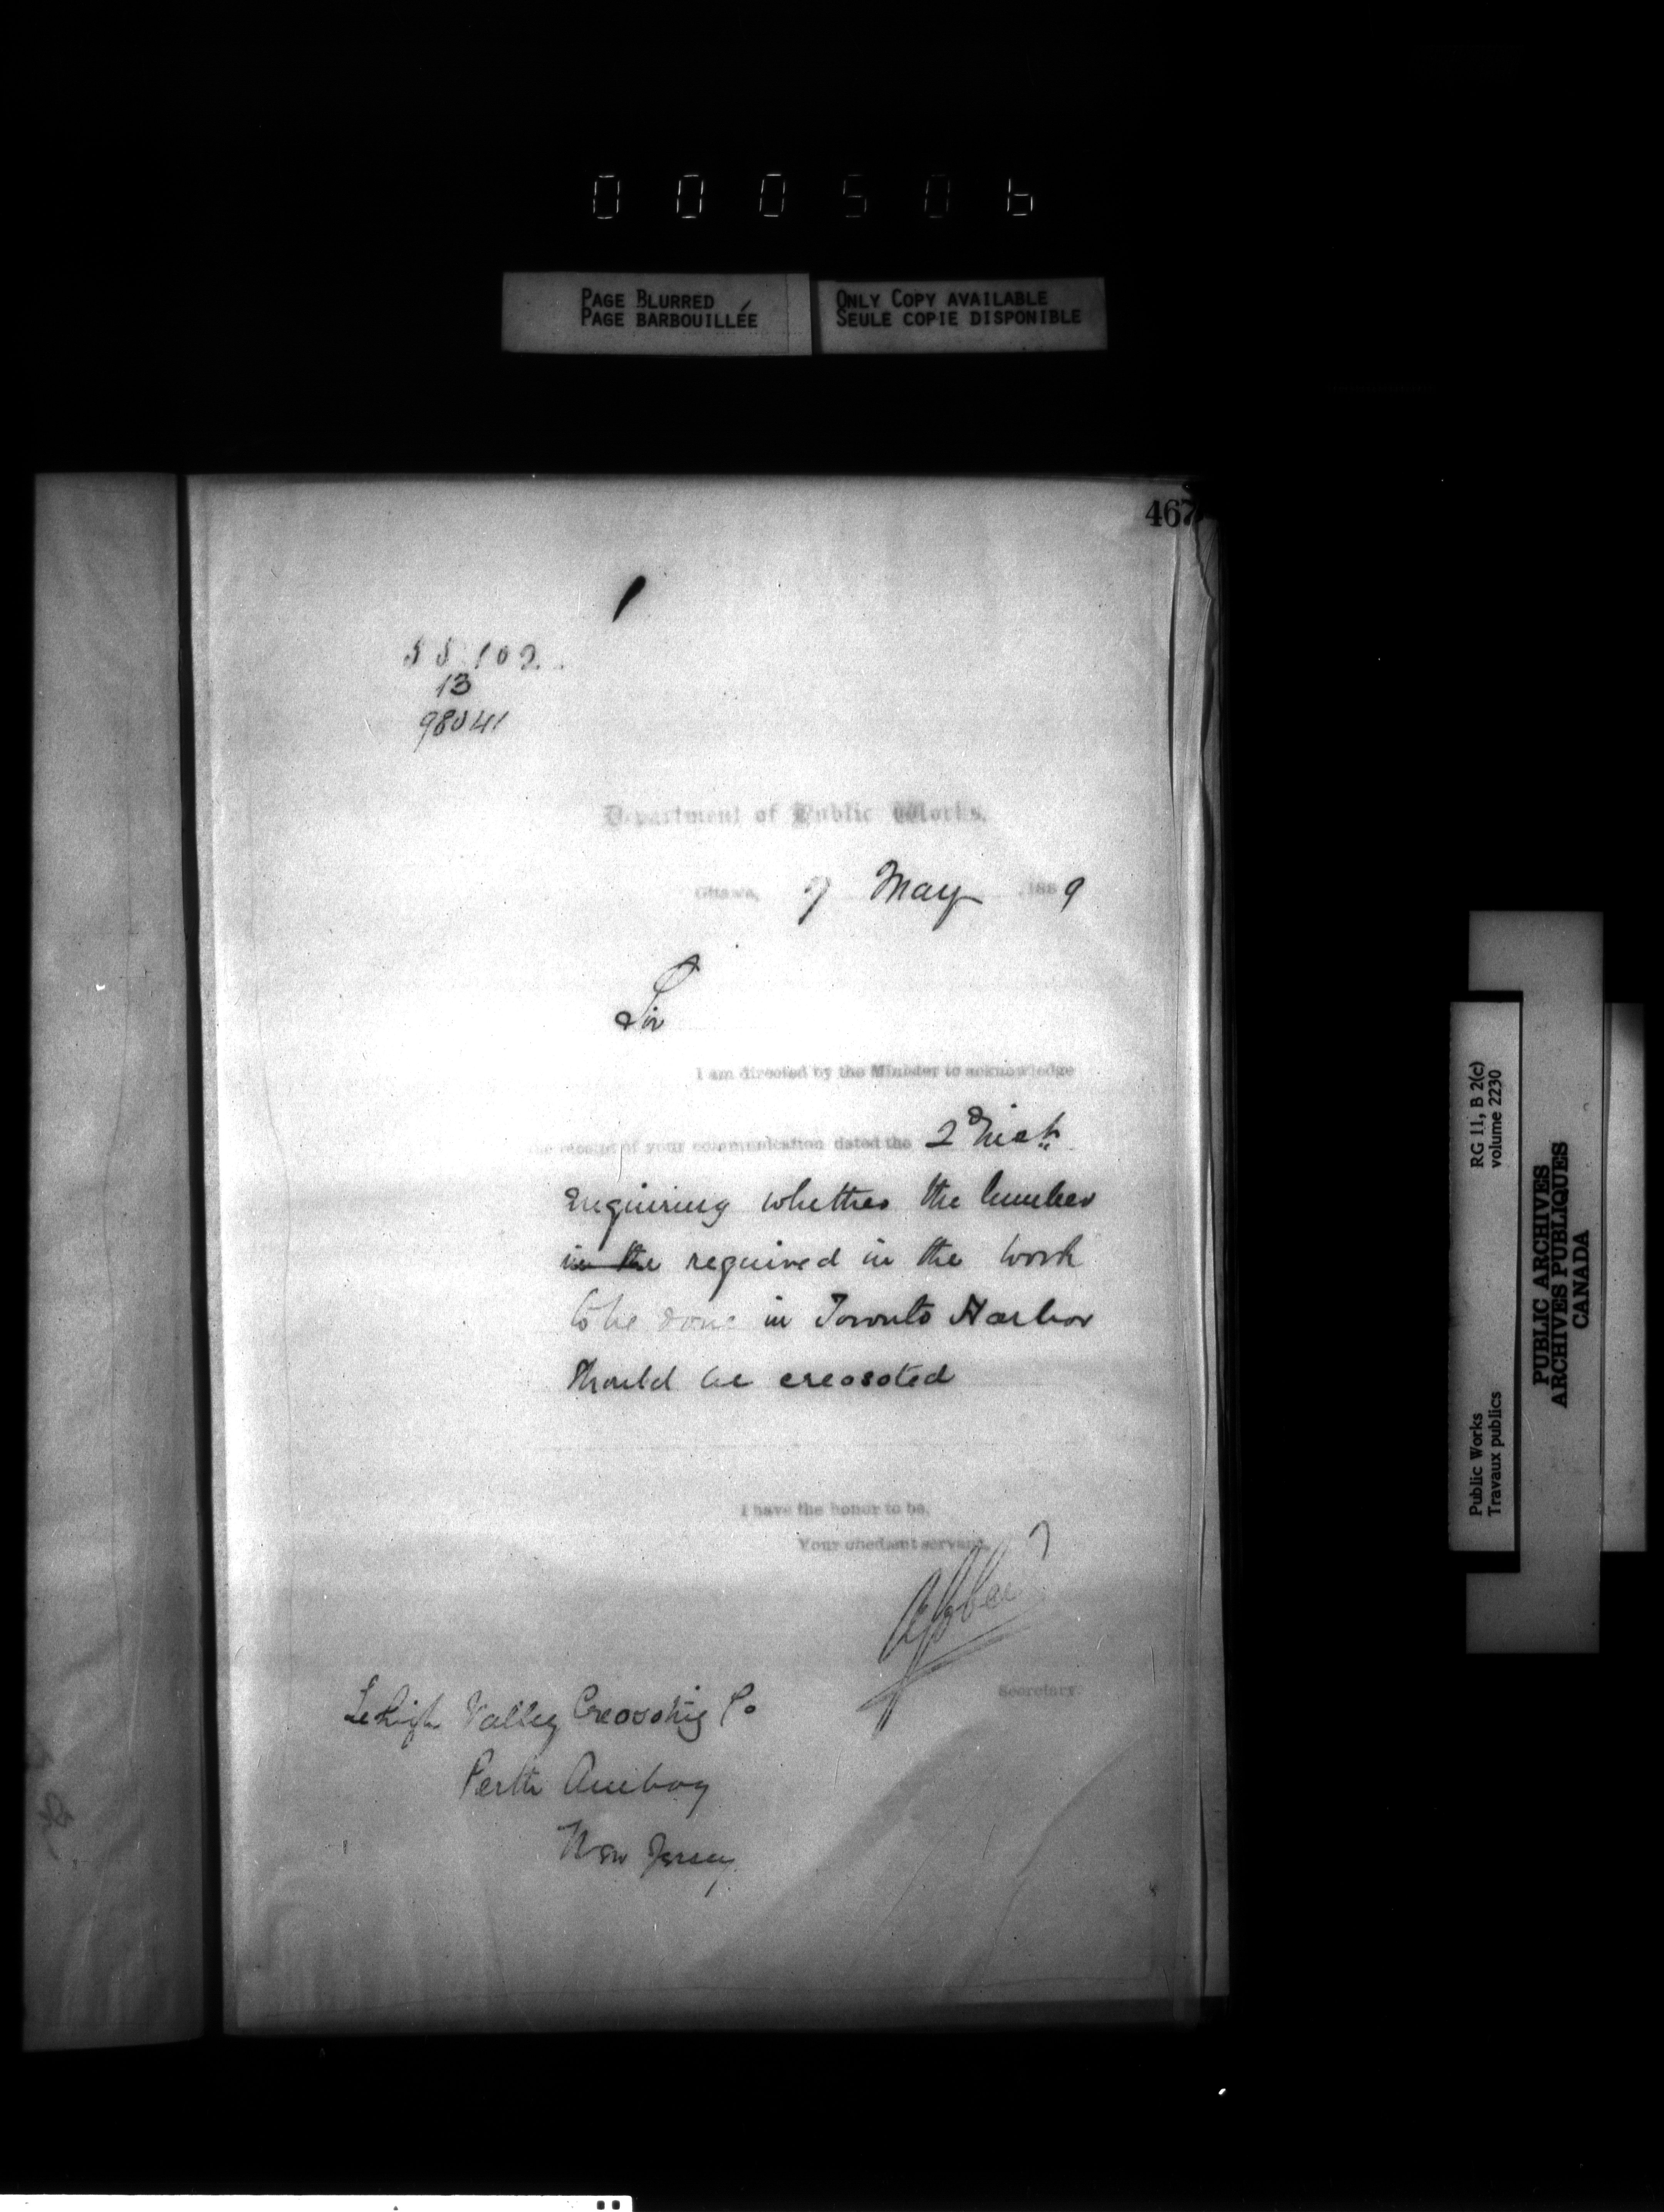 000506
PAGE BLURRED
PAGE BARBOUILLÉE
ONLY COPY AVAILABLE
SEULE COPIE DISPONIBLE
467
55102
13
98041
Department of Public Works.
Ottawa, 7 May 1889
Sir
I am directed by the Minister to acknowledge
the receipt of your communication dated the 2d inst.
enquiring whether the lumber
in the required in the work
to be done in Toronto Harbor
should be creosoted
I have the honor to be,
Your obedient servant,
Secretary.
Lehigh Valley Creosoting Co
Perth Amboy
New Jersey
RG 11, B 2(c)
volume 2230
Public Works
Travaux publics
PUBLIC ARCHIVES
ARCHIVES PUBLIQUES
CANADA